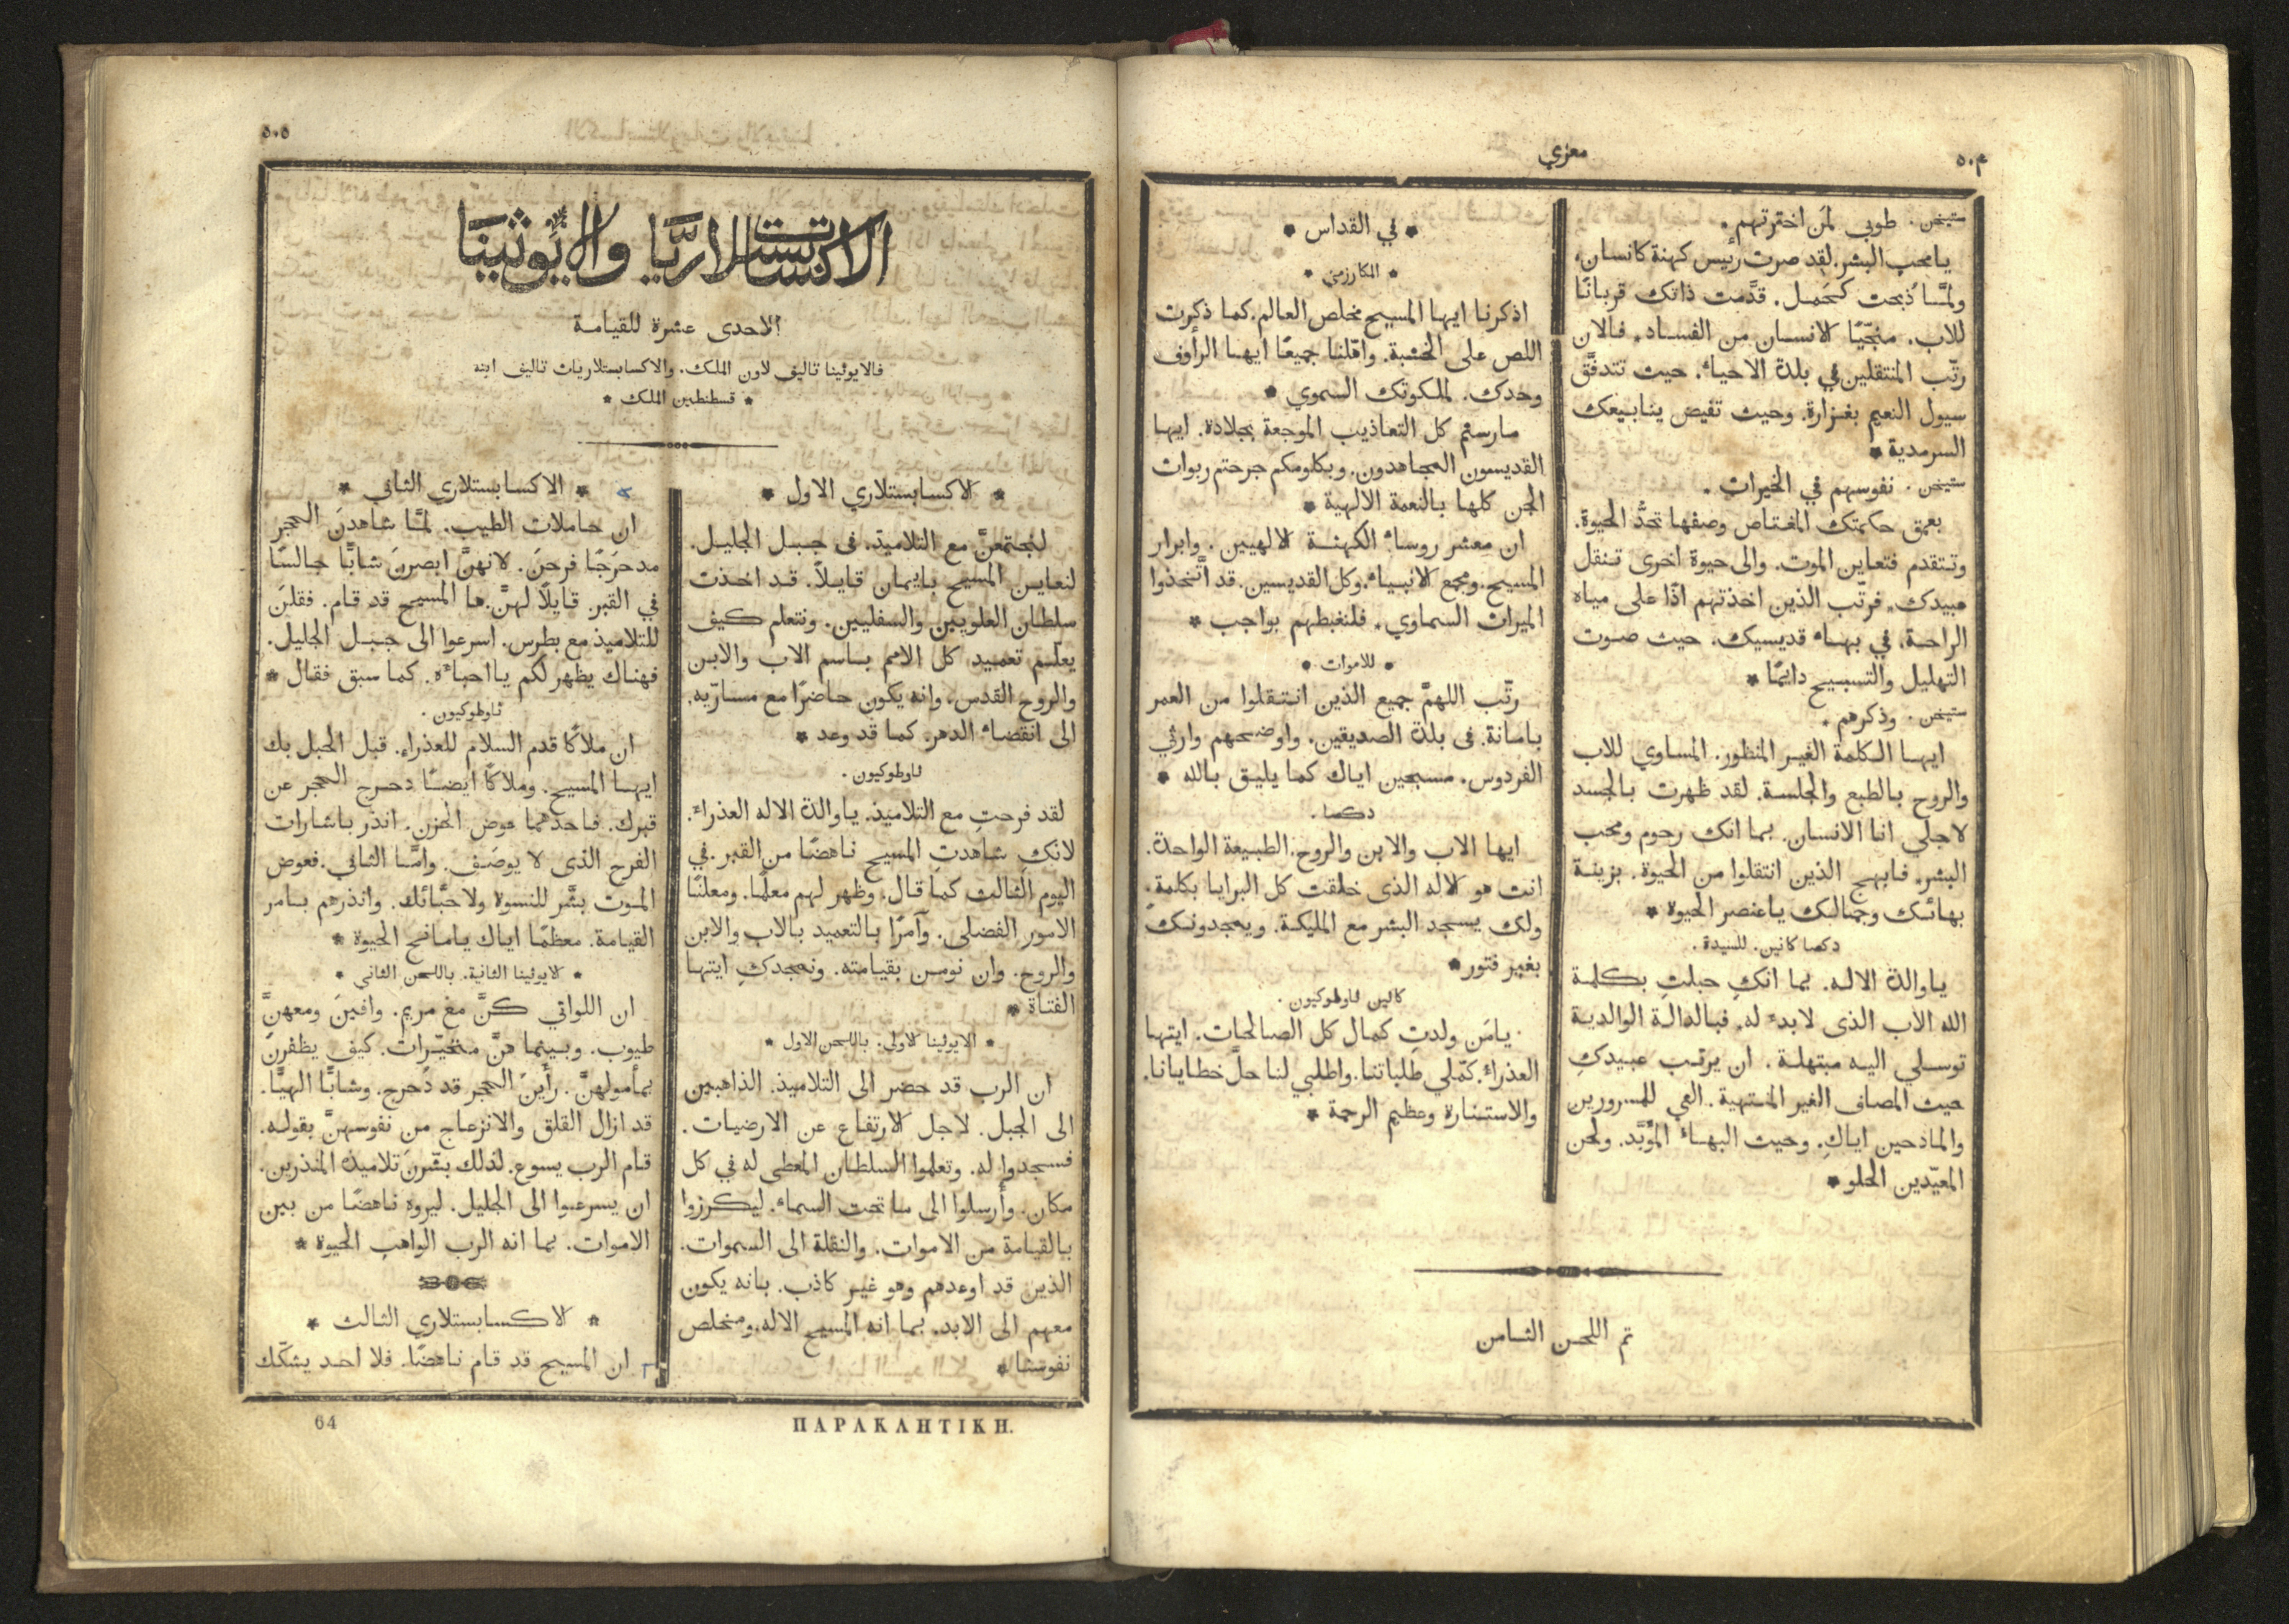 ٥٠٤
معزي
ستيخن. طوبى لمن اخترتهم.
يامحب البشر. لقد صرت رئيس كهنة كانسان،
ولمَّا ذُبحت كحَمل. قدَّمت ذاتك قربانًا
للاب. منجّيًا الانسان من الفساد. فالان
رتّب المنتقلين في بلدة الاحياء. حيث تتدفَّق
سيول النعيم بغزارة. وحيث تفيض ينابيعك
السرمدية *
ستيخن. نفوسهم في الخيرات.
بعمق حكمتك المغتاص وصفها تحدُّ الحيوة.
وتتقدم فتعاين الموت. والى حيوة اخرى تنقل
عبيدك. فرتّب الذين اخذتهم اذًا على مياه
الراحة. في بهاء قديسيك. حيث صوت
التهليل والتسبيح دايمًا *
ستيخن. وذكرهم.
ايها الكلمة الغير المنظور. المساوي للاب
والروح بالطبع والجلسة. لقد ظهرت بالجسد
لاجلي انا الانسان. بما انك رحوم ومحب
البشر. فابهج الذين انتقلوا من الحيوة. بزينة
بهائك وجمالك ياعنصر الحيوة *
دكصا كانين. للسيدة.
ياوالدة الاله. بما انكِ حبلتِ بكلمة
الله الاب الذى لابدء له. فبالدالة الوالدية
توسلي اليه مبتهلة. ان يرتب عبيدكِ
حيث المصاف الغير المنتهية. التي للمسرورين
والمادحين اياكِ. وحيث البهاء المؤبَّد. ولحن
المعيّدين الحلو *
* في القداس *
* المكارزمي *
اذكرنا ايها المسيح مخلص العالم. كما ذكرت
اللص على الخشبة. واهّلنا جميعًا ايها الرأوف
وحدك. لملكوتك السموي *
مارستم كل التعاذيب الموجعة بجلادة. ايها
القديسون المجاهدون. وبكلومكم جرحتم ربوات
الجن كلها بالنعمة الالهية *
ان معشر روساء الكهنة الالهيين. وابرار
المسيح. ومجمع الانبياء. وكل القديسين. قد اتَّخذوا
الميراث السماوي. فلنغبطهم بواجب *
* للاموات *
رتّب اللهمَّ جميع الذين انتقلوا من العمر
بامانة. فى بلدة الصديقين. واوضحهم وارثي
الفردوس. مسبحين اياك كما يليق بالله *
دكصا.
ايها الاب والابن والروح. الطبيعة الواحدة.
انت هو الاله الذى خلقت كل البرايا بكلمة.
ولك يسجد البشر مع المليكة. ويمجدونك
بغير فتور *
كانين ثاوطوكيون.
يامَن ولدتِ كمال كل الصالحات. ايتها
العذراء. كمّلي طلباتنا. واطلبي لنا حلَّ خطايانا.
والاستنارة وعظيم الرحمة *
تم اللحن الثامن
٥٠٥
الاكسابستلاريَّا والايُوثينَا
الاحدى عشرة للقيامة
فالايوثينا تاليف لاون الملك. والاكسابستلاريات تاليف ابنه
* قسطنطين الملك *
* الاكسابستلاري الاول *
لنجتمعنَّ مع التلاميذ. فى جبل الجليل.
لنعاين المسيح بايمان قايلاً. قد اخذت
سلطان العلويين والسفليين. ونتعلم كيف
يعلّم تعميد كل الامم باسم الاب والابن
والروح القدس. وانه يكون حاضرًا مع مسارّيه.
الى انقضاء الدهر. كما قد وعد *
ثاوطوكيون.
لقد فرحتِ مع التلاميذ. ياوالدة الاله العذراء.
لانكِ شاهدتِ المسيح ناهضًا من القبر. في
اليوم الثالث كما قال. وظهر لهم معلمًا. ومعلنًا
الامور الفضلى. وآمرًا بالتعميد بالاب والابن
والروح. وان نومن بقيامته. ونمجدكِ ايتها
الفتاة *
* الايوثينا الاولى. باللحن الاول *
ان الرب قد حضر الى التلاميذ. الذاهبين
الى الجبل. لاجل الارتفاع عن الارضيات.
فسجدوا له. وتعلموا السلطان المعطى له في كل
مكان. وأرسلوا الى ما تحت السماء. ليكرزوا
بالقيامة من الاموات. والنقلة الى السموات.
الذين قد اوعدهم وهو غير كاذب. بانه يكون
معهم الى الابد. بما انه المسيح الاله. ومخلص
نفوسنا *
* الاكسابستلاري الثاني *
ان حاملات الطيب. لمَّا شاهدنَ الحجر
مدحرَجًا فرحنَ. لانهنَّ ابصرنَ شابًّا جالسًا
في القبر. قايلاً لهنَّ. ها المسيح قد قام. فقلنَ
للتلاميذ مع بطرس. اسرعوا الى جبل الجليل.
فهناك يظهر لكم يااحباءه. كما سبق فقال *
ثاوطوكيون.
ان ملاكًا قدم السلام للعذراء. قبل الحبل بك
ايها المسيح. وملاكًا ايضًا دحرج الحجر عن
قبرك. فاحدهما عوض الحزن. انذر باشارات
الفرح الذى لا يوصَف. وامَّا الثاني. فعوض
الموت بشَّر للنسوة ولاحبَّائك. وانذرهم بامر
القيامة. معظمًا اياك يامانح الحيوة *
* الايوثينا الثانية. باللحن الثانى *
ان اللواتي كنَّ مع مريم. وافينَ ومعهنَّ
طيوب. وبينما هنَّ متحيّرات. كيف يظفرنَ
بمأمولهنَّ. رأينَ الحجر قد دُحرج. وشابًّا الهيًّا.
قد ازال القلق والانزعاج من نفوسهنَّ بقوله.
قام الرب يسوع. لذلك بشّرنَ تلاميذه المنذرين.
ان يسرعوا الى الجليل. ليروه ناهضًا من بين
الاموات. بما انه الرب الواهب الحيوة *
* الاكسابستلاري الثالث *
ان المسيح قد قام ناهضًا. فلا احد يشكّك
ΠΑΡΑΚΛΗΤΙΚΗ.
64